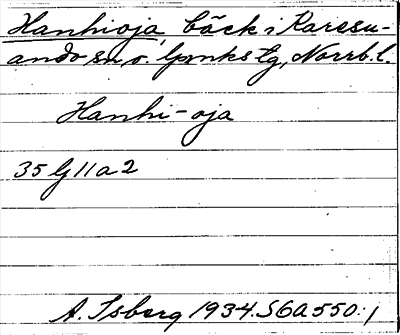 Hanhioja, bäck i Karesu-
ando sn, o. lpmks tg, Norrb. l.
Hanhi-oja
35 g 11 a 2
A. Isberg 1934. S 6a 550:1